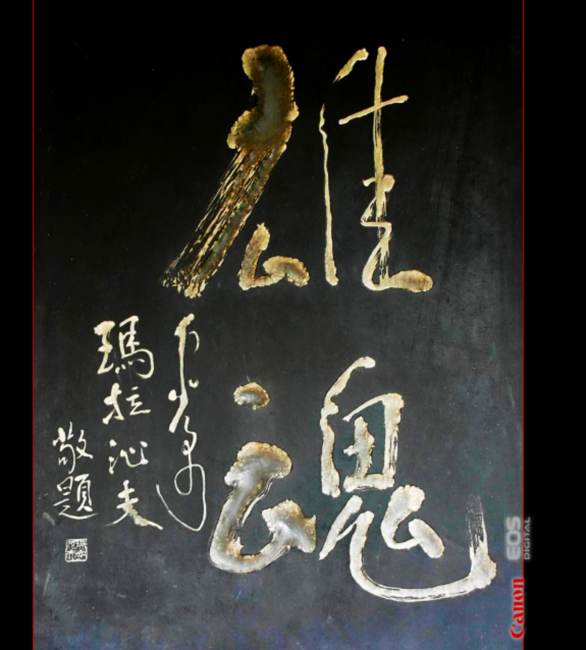 雄
魂
瑪拉沁夫
敬題
Canon
EOS
DIGITAL